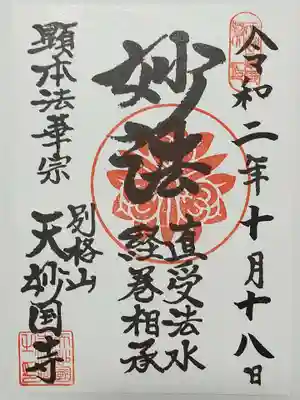 令和二年十月十八日
妙法
直受法水
経巻相承
顕本法華宗
別格山
天妙国寺